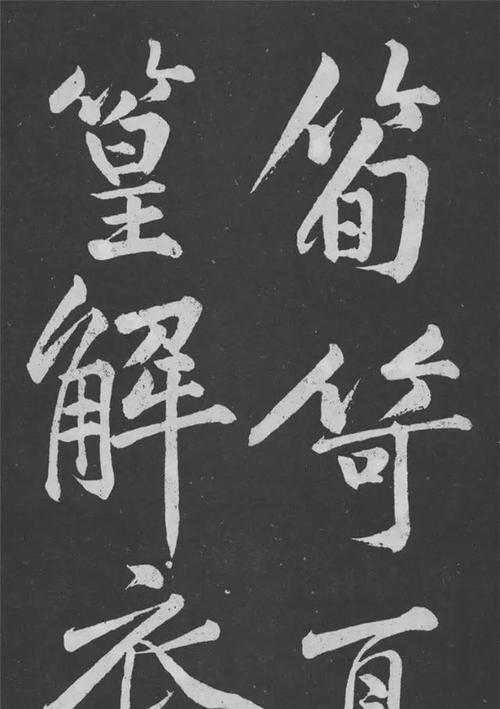 筍笴
篁解衣